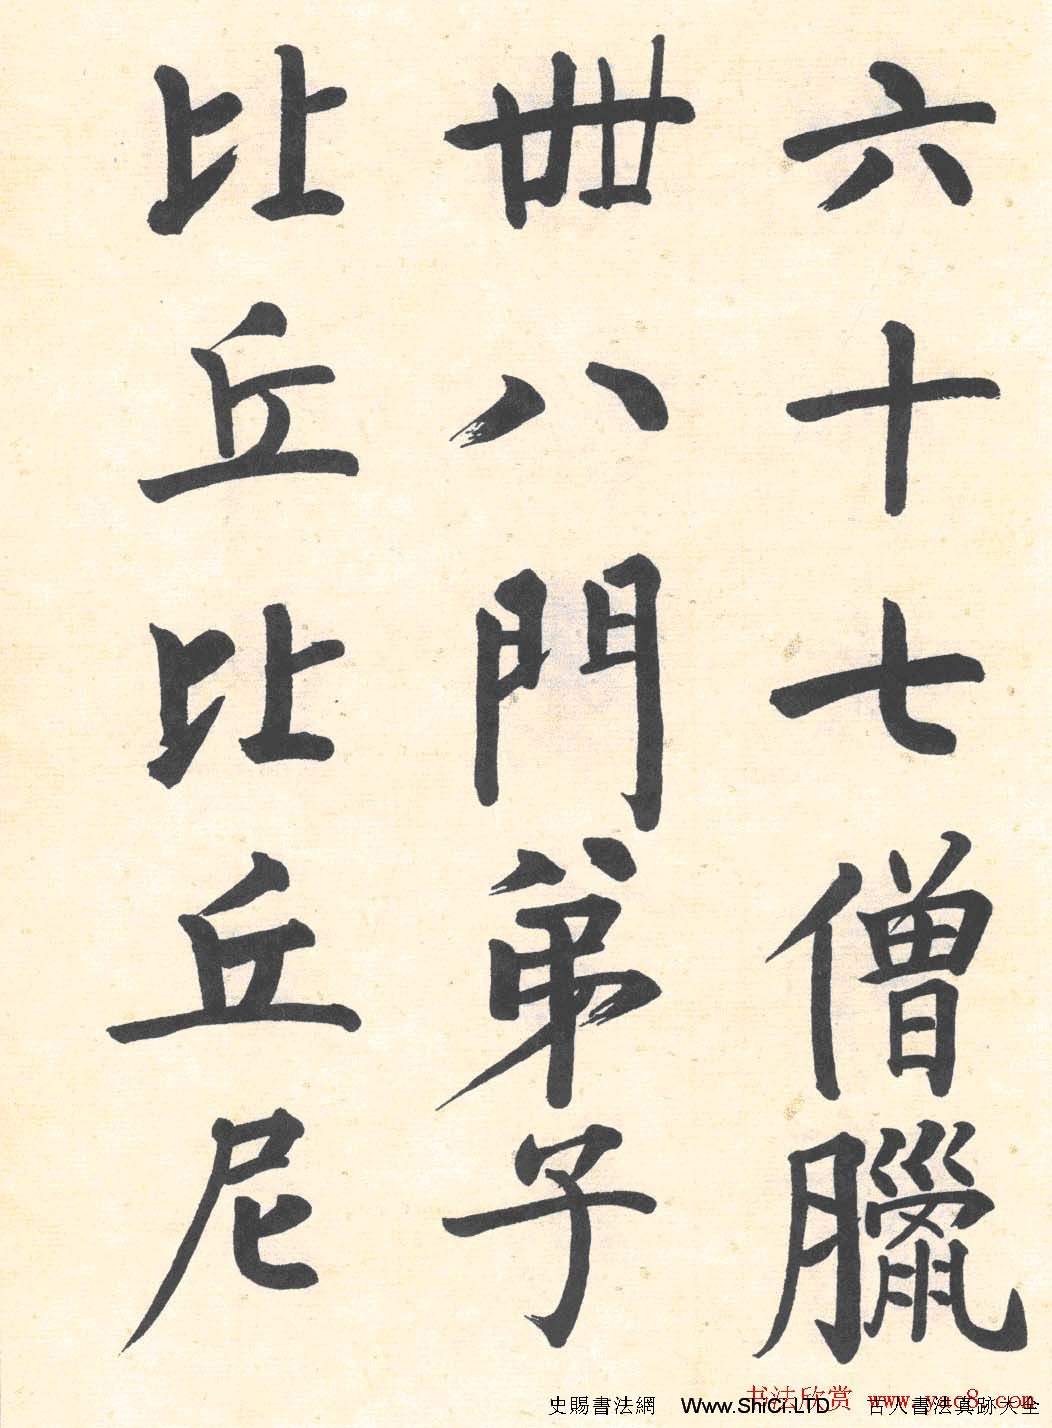 六十七僧臘
卌八門弟子
比丘比丘尼
书法欣赏 www.yac8.com
史賜書法網 Www.ShiCi.LTD 古人書法真跡大全